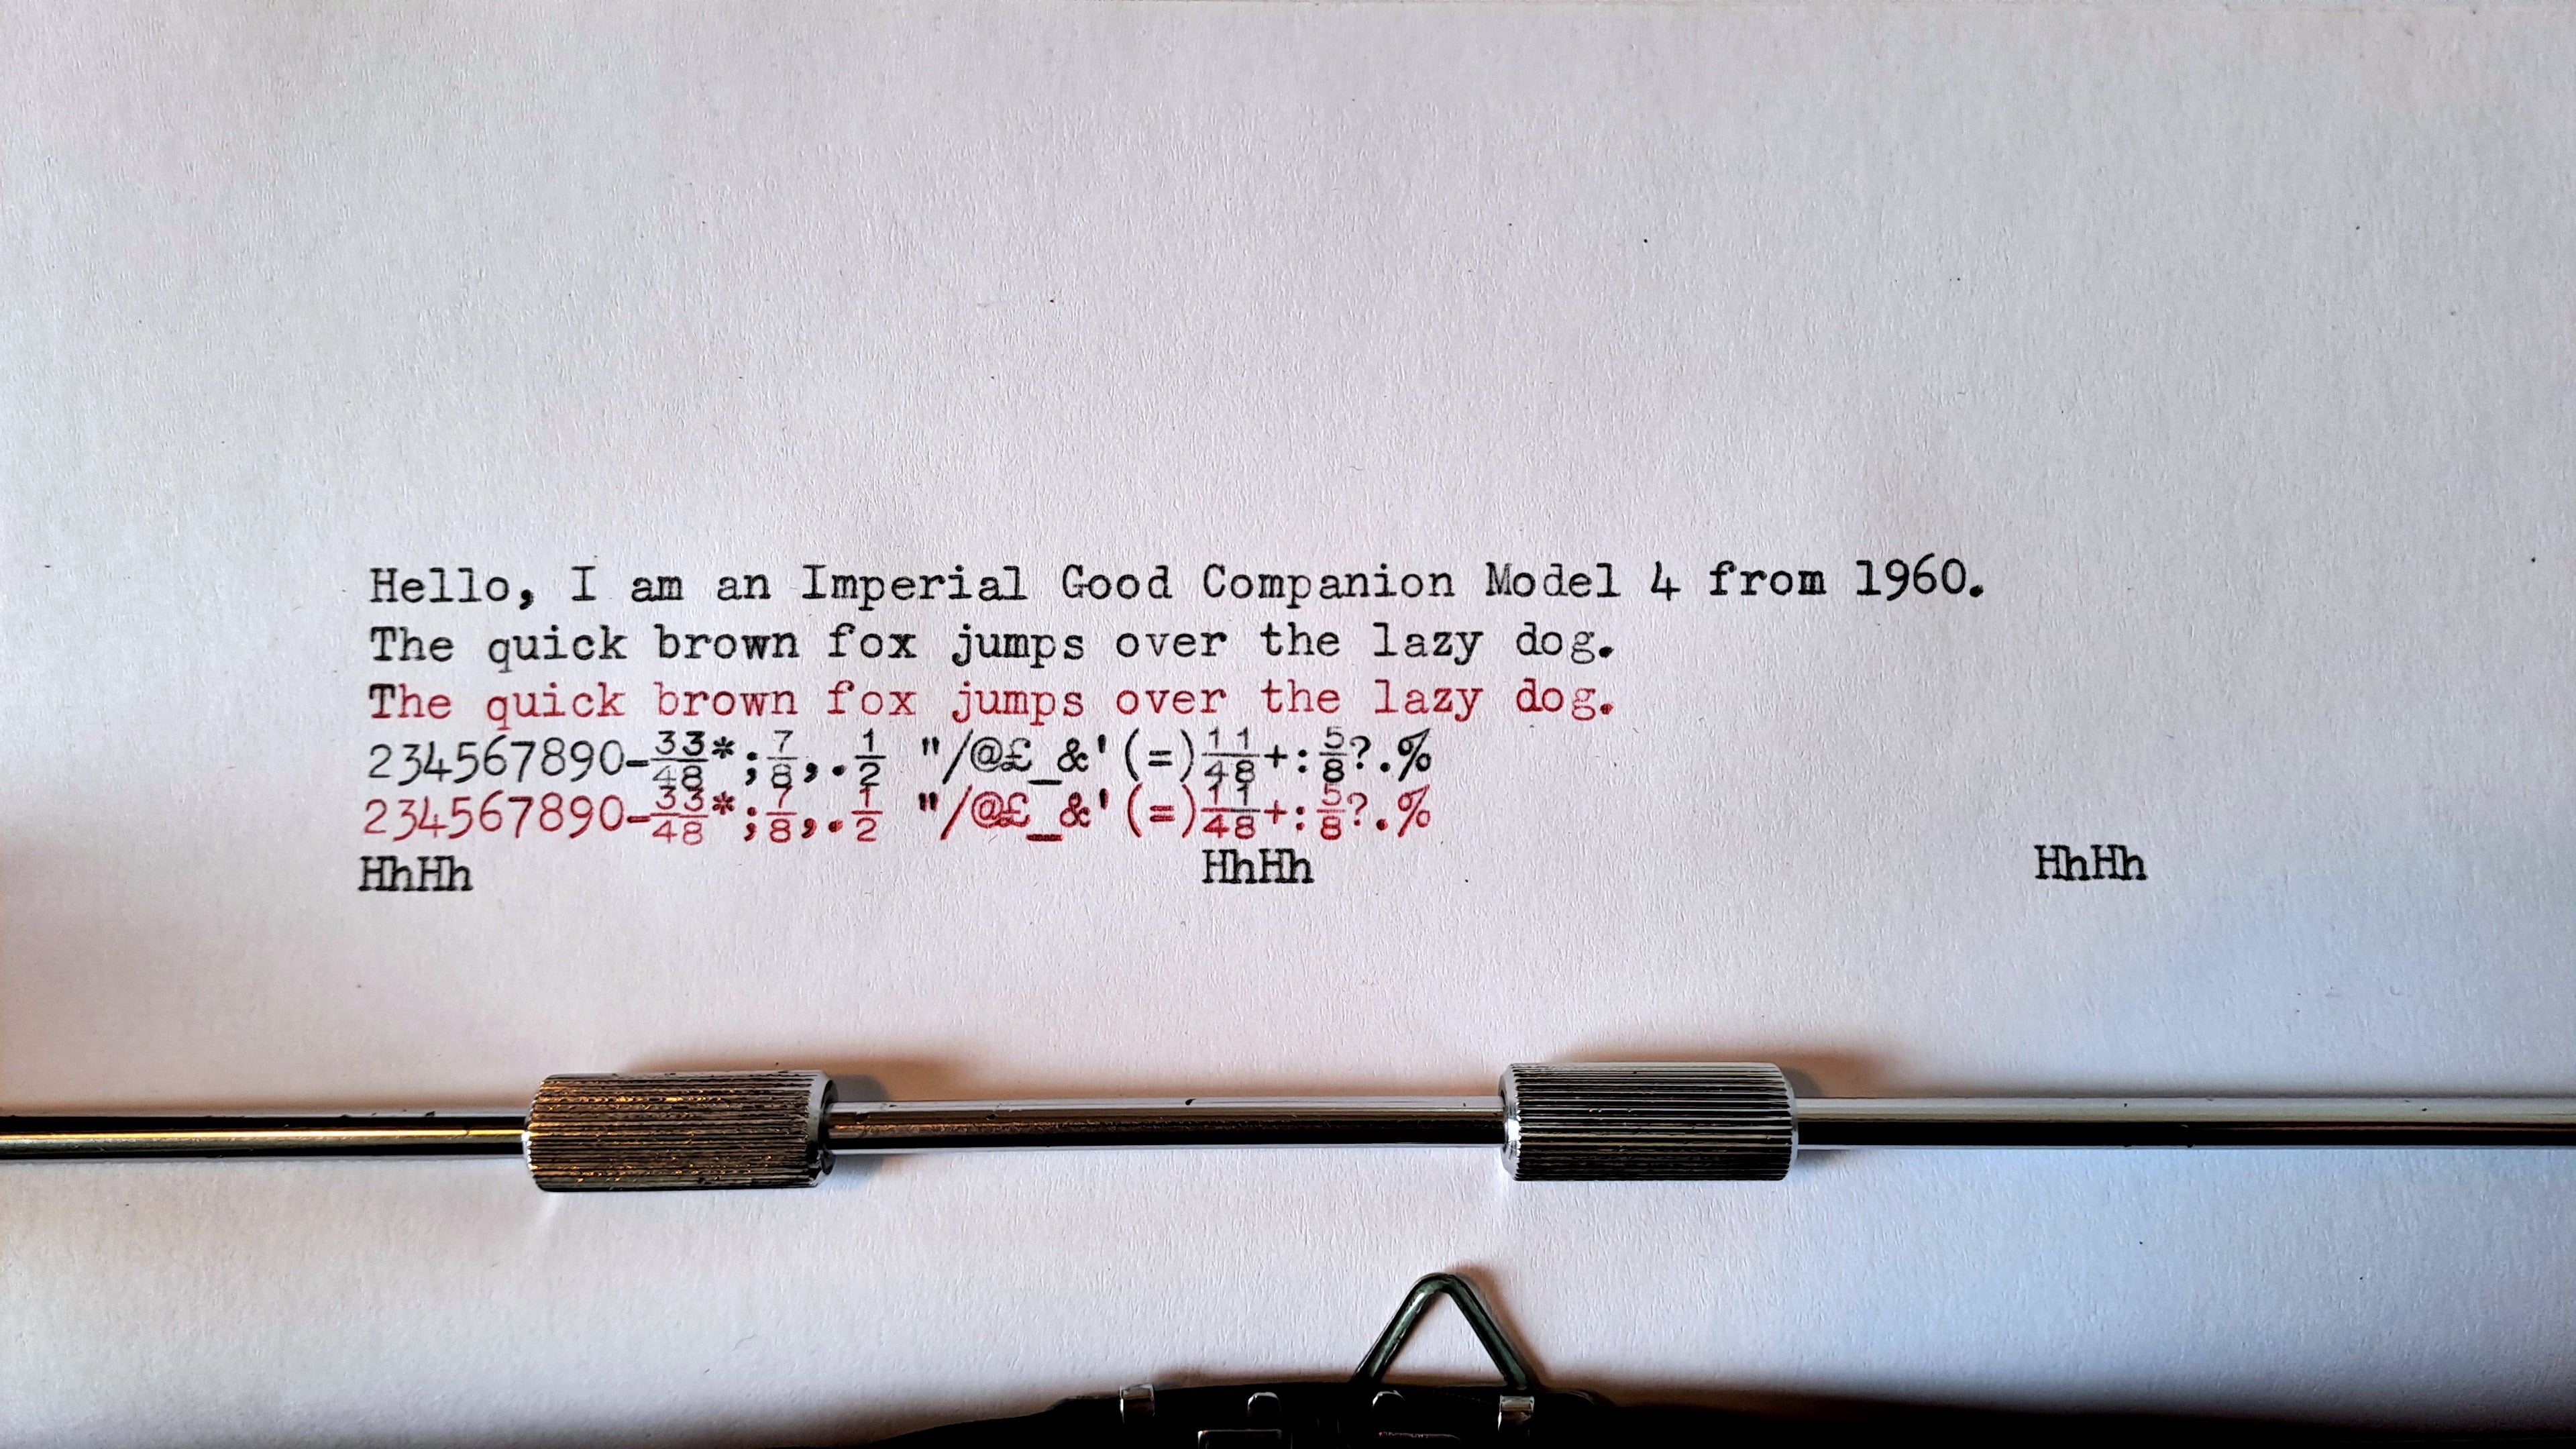 Hello, I am an Imperial Good Companion Model 4 from 1960.
The quick brown fox jumps over the lazy dog.
The quick brown fox jumps over the lazy dog.
234567890-¾⅜*;⅞,.½ "/@£_&'(=)¼⅛+:⅝?.%
234567890-¾⅜*;⅞,.½ "/@£_&'(=)¼⅛+:⅝?.%
HhHh HhHh HhHh